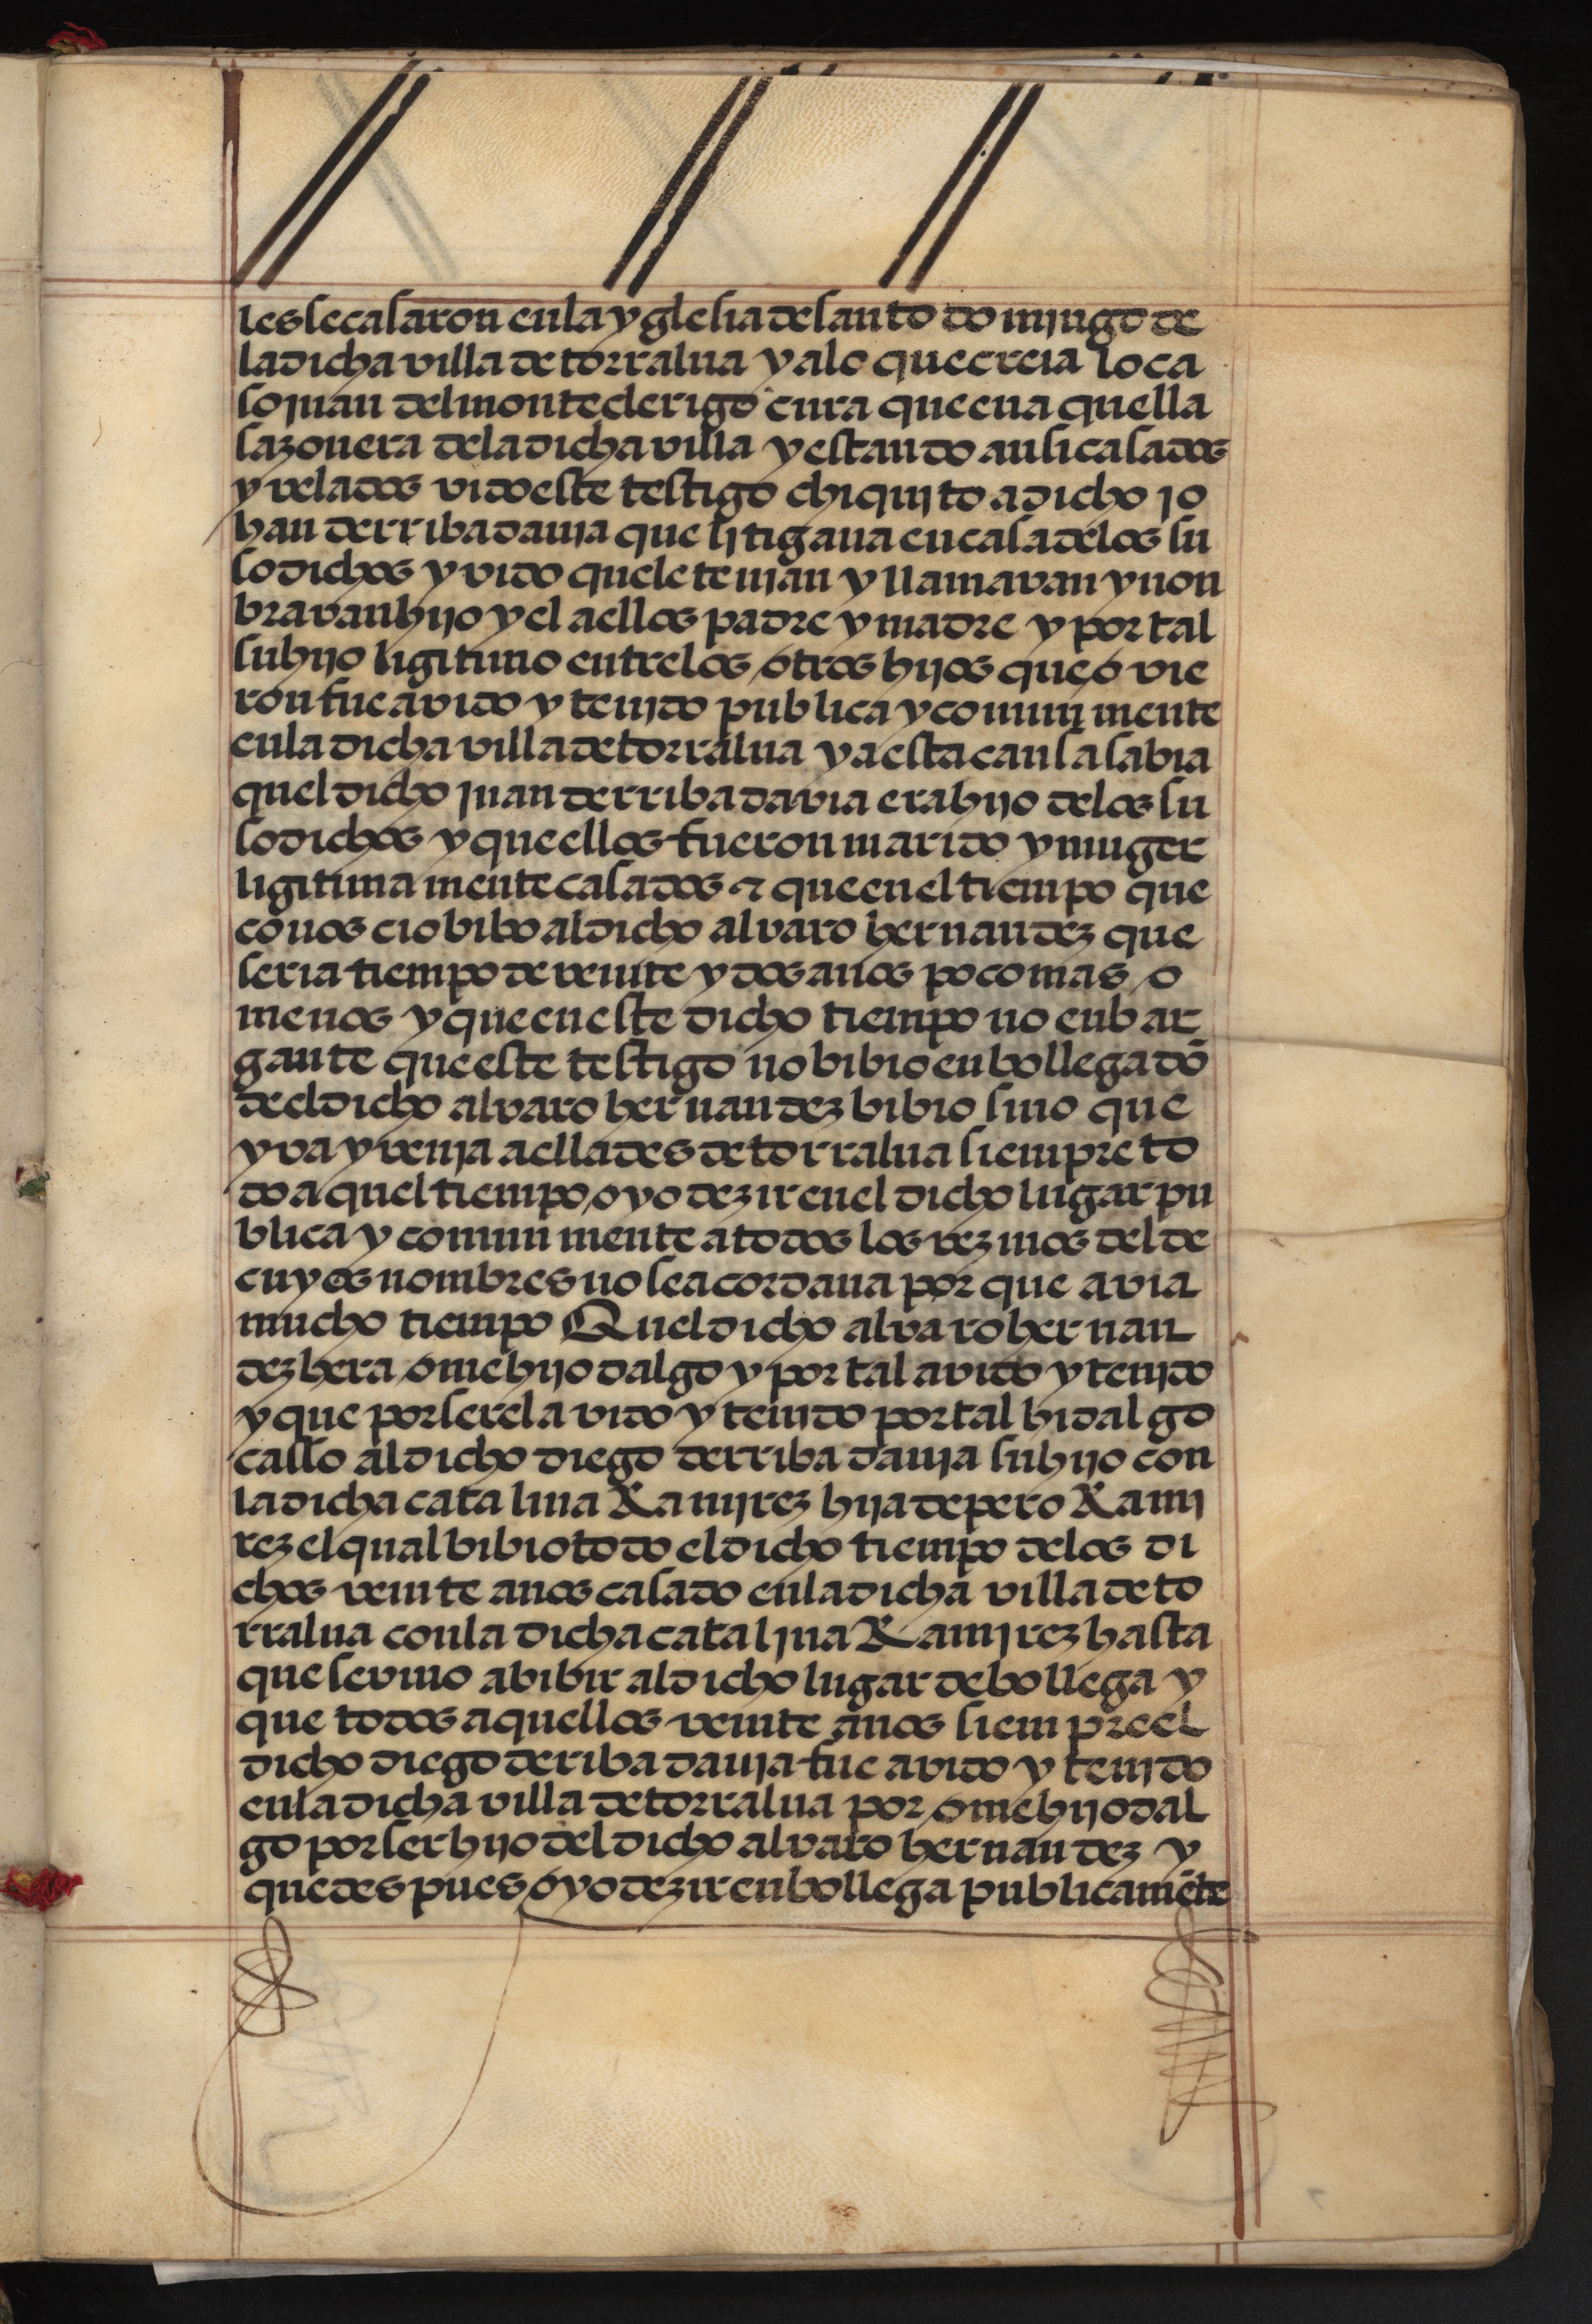 les se casaron en la yglesia de santo domjngo de
la dicha villa de torralua y a lo que creia lo ca
so juan del monte clerigo cura que en a quella
sazon era de la dicha villa y estando ansi casados
y velados vido este testigo chiqujto a dicho jo
han de rribadauja que ljtigaua en casa de los su
so dichos y vido que le tenjan y llamavan y non
bravan hijo y el a ellos padre y madre y por tal
su hijo ligitimo entre los otros hijos que o vie
ron fue avido y tenjdo publica y comunmente
en la dicha villa de torralua y a esta causa sabia
quel dicho juan de rribadavia era hijo de los su
so dichos y que ellos fueron marido y muger
ligitima mente casados ⁊ que en el tiempo que
conoscio bibo al dicho alvaro hernandez que
seria tiempo de veinte y dos anos poco mas o
menos y que en este dicho tiempo no enbar
gante que este testigo no bibio en bollega dō
de el dicho alvaro hernandez bibio sino que
yva y venja a ella desde torralua siempre to
do a quel tiempo oyo dezir en el dicho lugar pu
blica y comun mente a todos los vezinos del de
cuyos nombres no se acordaua por que avia
mucho tiempo Quel dicho alvaro hernan
dez hera ome hijo dalgo y por tal avido y tenjdo
y que por ser el avido y tenido por tal hidalgo
casso al dicho diego de rribadauja su hijo con
la dicha catalina Ramjrez hija de pero Rami
rez el qual bibio todo el dicho tiempo de los di
chos veinte anos casado en la dicha villa de to
rralua con la dicha cataljna Ramjrez hasta
que se vino a bibir al dicho lugar de bollega y
que todos aquellos veinte anos siempre el
dicho diego de ribadauja fue avido y tenjdo
en la dicha villa de torralua por ome hijo dal
go por ser hijo del dicho alvaro hernandez y
que despues oyo dezir en bollega publicamēte